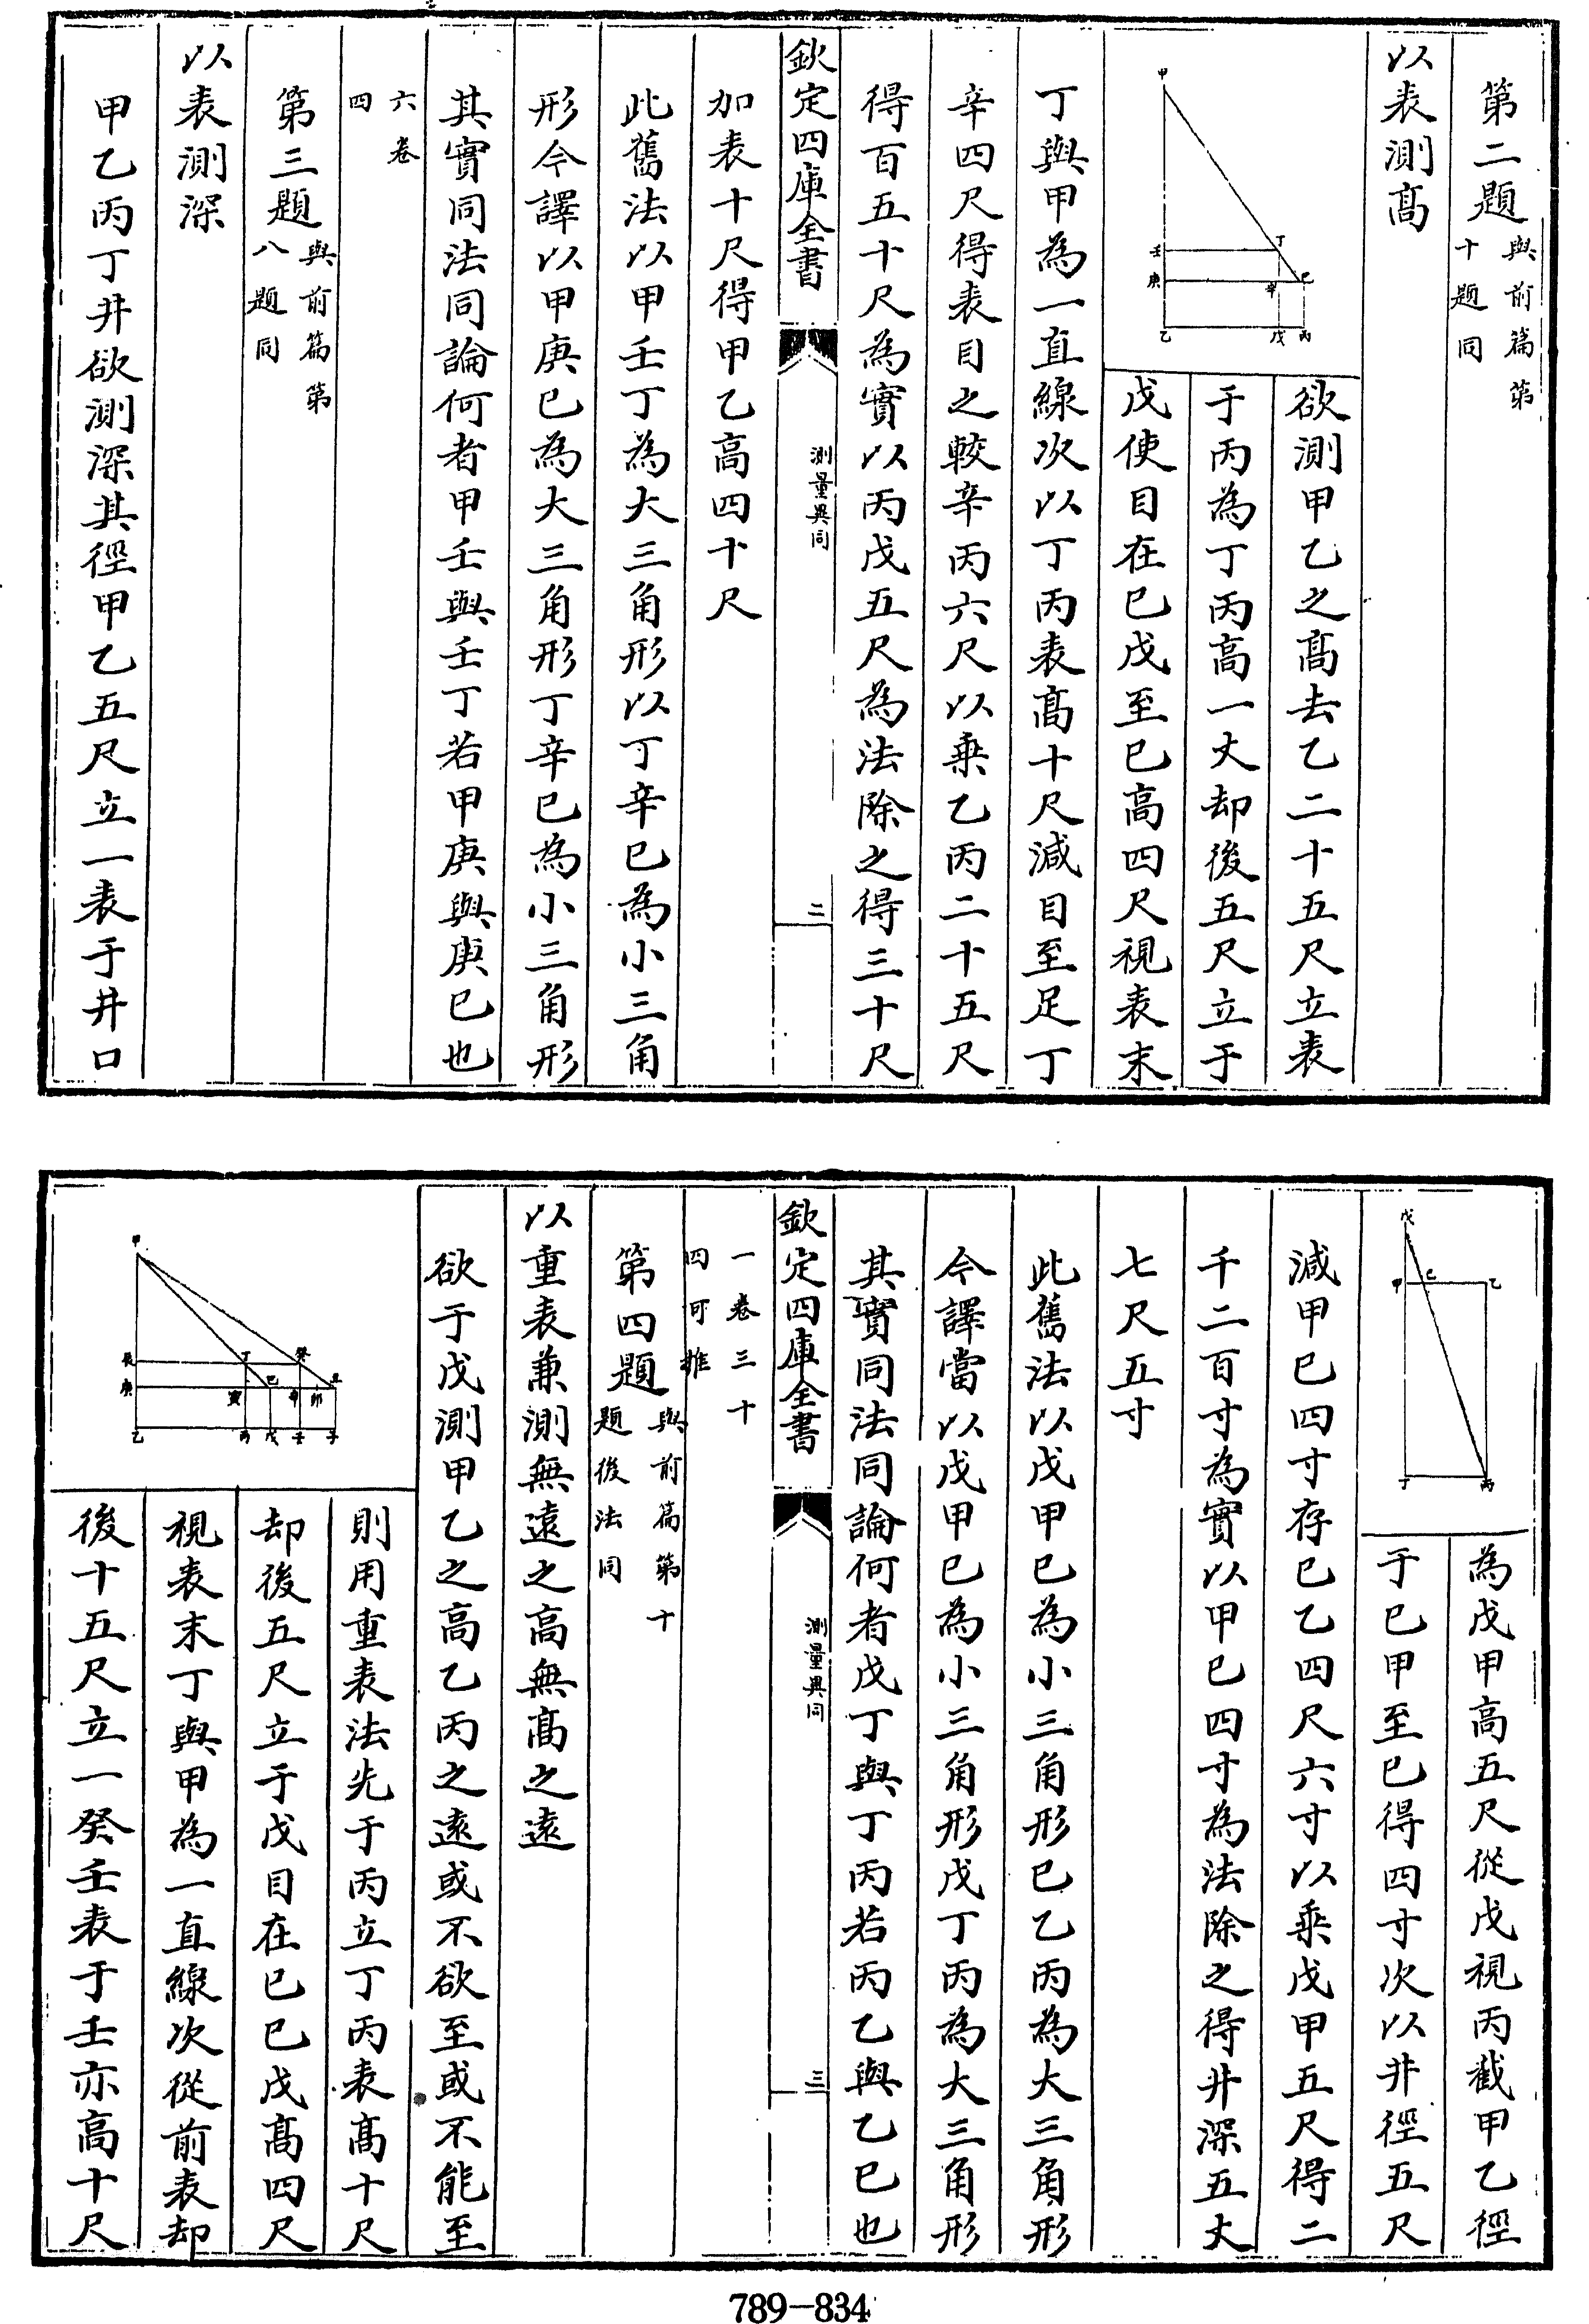 第二題與前篇第十題同
以表測髙
甲
丁
壬
己
庚
辛
乙
戊
丙
欲測甲乙之髙去乙二十五尺立表
于丙為丁丙高一丈却後五尺立于
戊使目在巳戊至巳高四尺視表末
丁與甲為一直線次以丁丙表髙十尺減目至足丁
辛四尺得表目之較辛丙六尺以乗乙丙二十五尺
得百五十尺為實以丙戊五尺為法除之得三十尺
欽定四庫全書
測量異同
二
加表十尺得甲乙高四十尺
此舊法以甲壬丁為大三角形以丁辛巳為小三角
形今譯以甲庚巳為大三角形丁辛巳為小三角形
其實同法同論何者甲壬與壬丁若甲庚與庚巳也
六卷四
第三題與前篇第八題同
以表測深
甲乙丙丁井欲測深其徑甲乙五尺立一表于井口
戊
甲
己
乙
丁
丙
為戊甲高五尺從戊視丙截甲乙徑
于巳甲至巳得四寸次以井徑五尺
減甲巳四寸存巳乙四尺六寸以乘戊甲五尺得二
千二百寸為實以甲巳四寸為法除之得井深五丈
七尺五寸
此舊法以戊甲巳為小三角形巳乙丙為大三角形
今譯當以戊甲巳為小三角形戊丁丙為大三角形
其實同法同論何者戊丁與丁丙若丙乙與乙巳也
欽定四庫全書
測量異同
三
一卷三十四可推
第四題與前篇第十題後法同
以重表兼測無遠之高無髙之遠
欲于戊測甲乙之高乙丙之遠或不欲至或不能至
甲
辰
丁
癸
庚
寅
己
辛
卯
丑
乙
丙
戊
壬
子
則用重表法先于丙立丁丙表髙十尺
却後五尺立于戊目在巳巳戊髙四尺
視表末丁與甲為一直線次從前表却
後十五尺立一癸壬表于壬亦高十尺
789-834